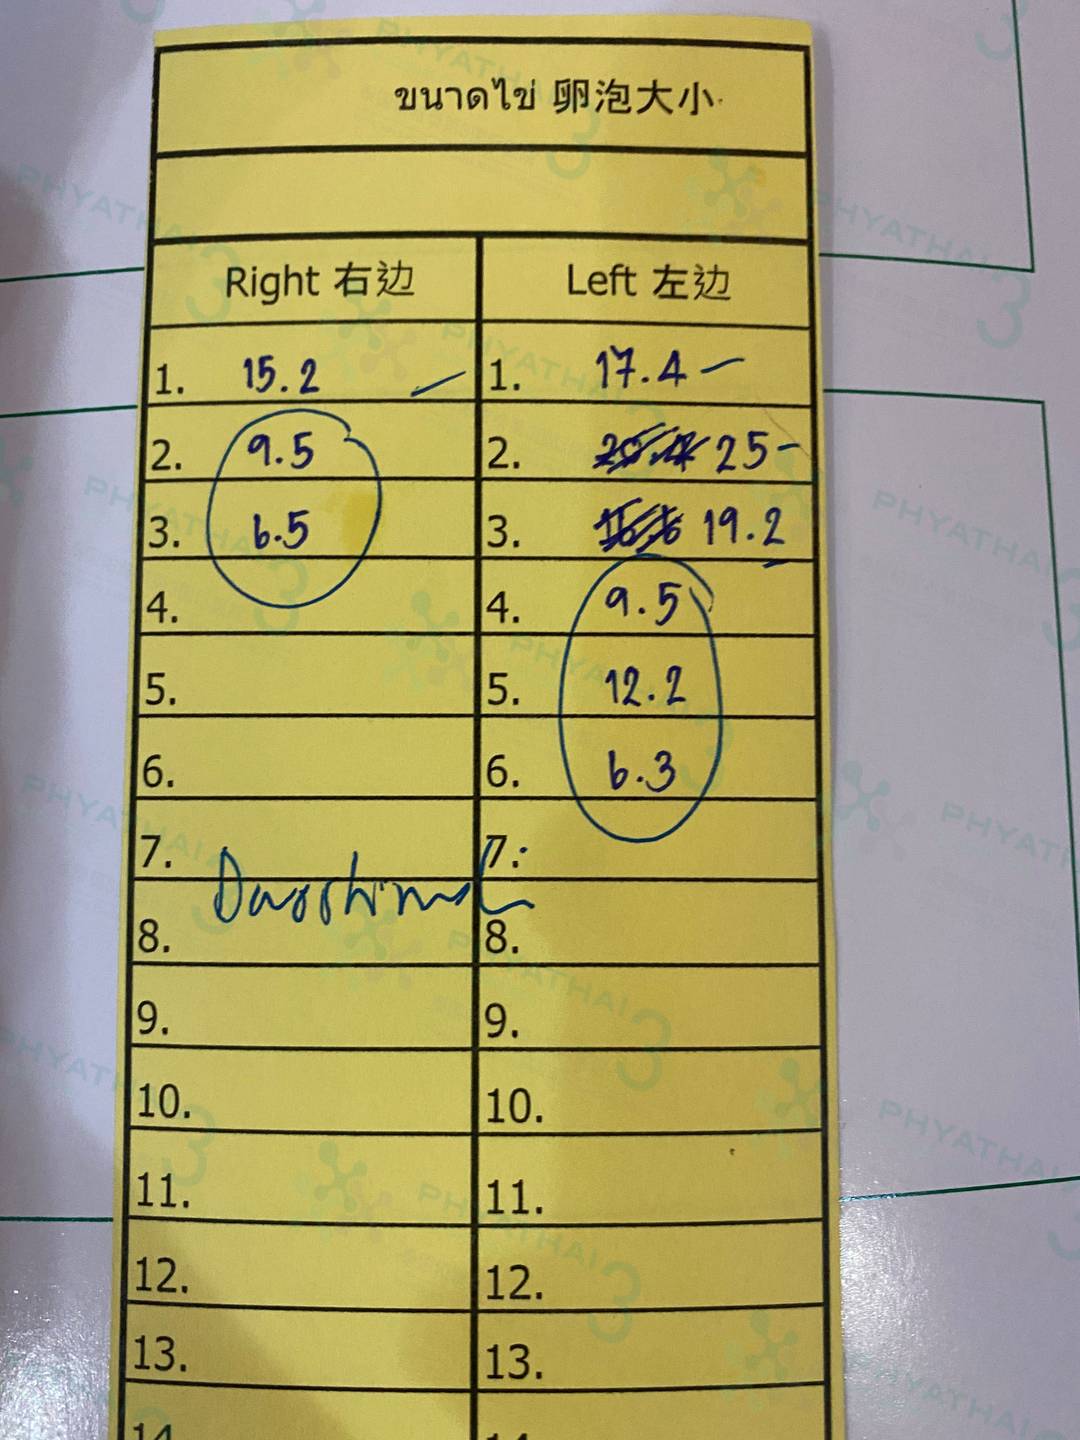 ขนาดไข่ 卵泡大小
Right 右边 Left 左边
1. 15.2 1. 17.4
2. 9.5 2. 25
3. 6.5 3. 19.2
4. 4. 9.5
5. 5. 12.2
6. 6. 6.3
7. 7.
8. 8.
9. 9.
10. 10.
11. 11.
12. 12.
13. 13.
14 14
PHYATHAI 3